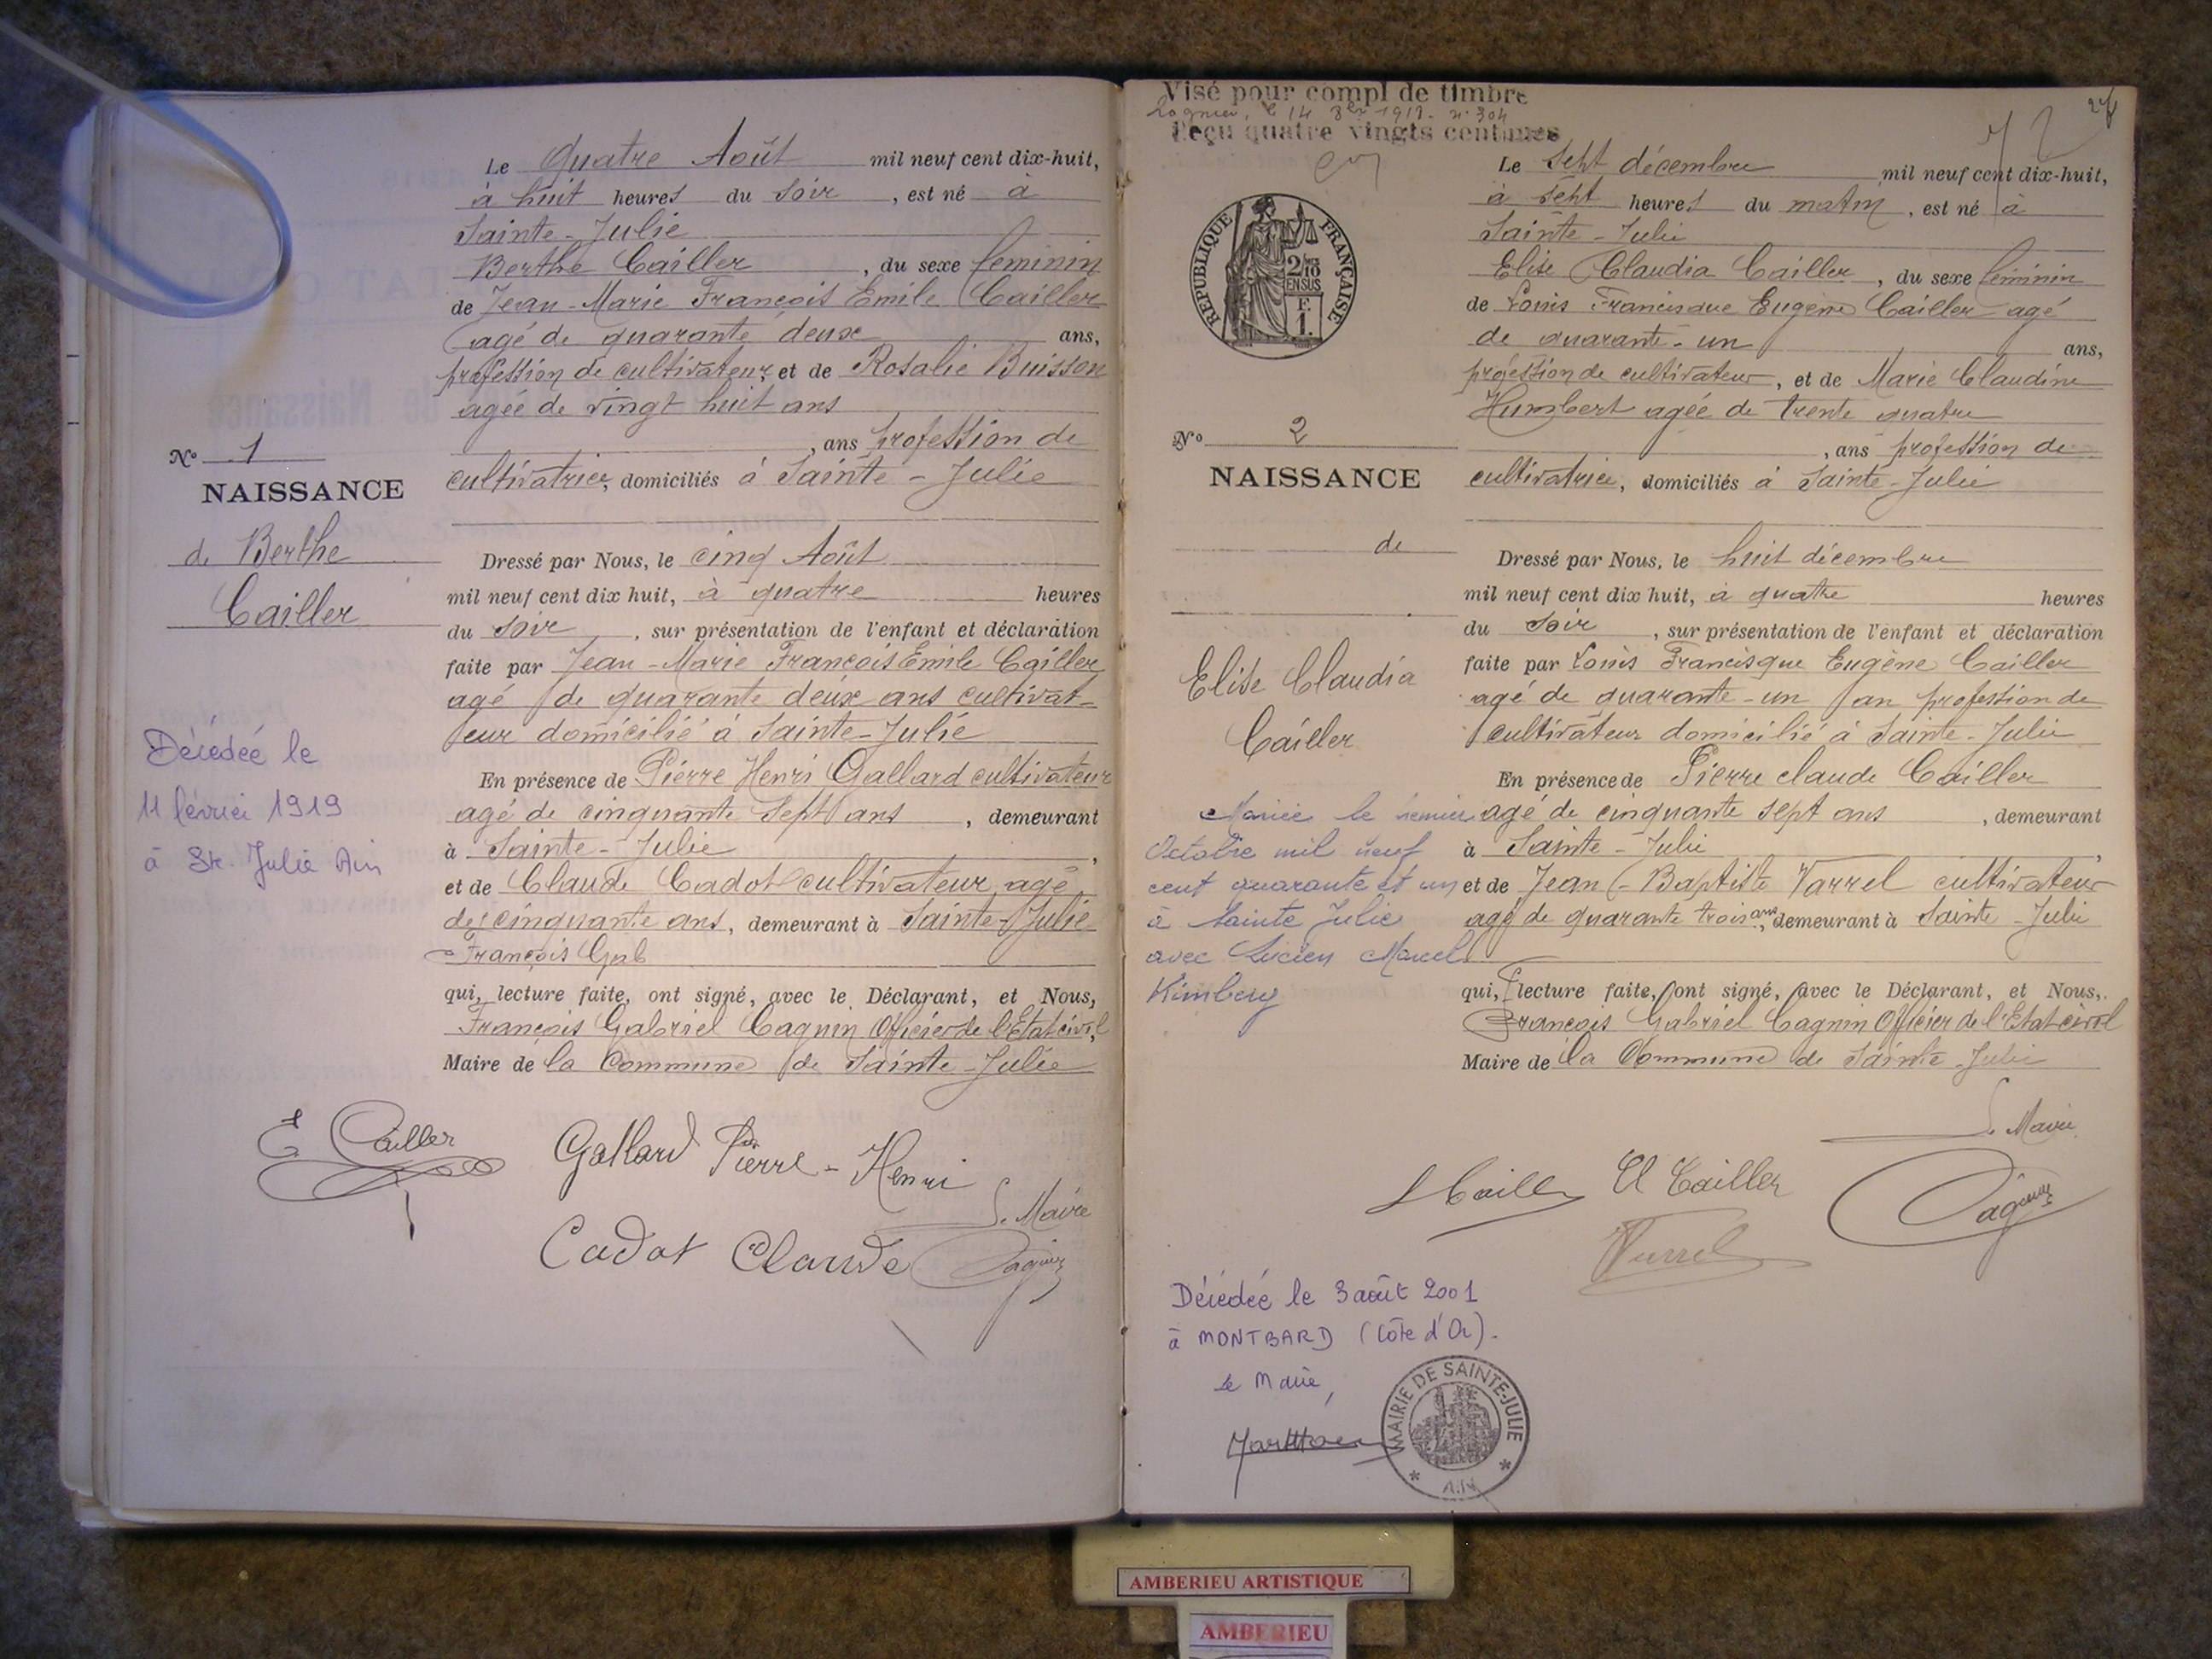 Le Quatre Août mil neuf cent dix-huit,
à huit heures du soir, est né à
Sainte-Julie
Berthe Cailler, du sexe féminin
de Jean-Marie François Emile Cailler
agé de quarante deux ans,
profession de cultivateur, et de Rosalie Buisson
agée de vingt huit ans
, ans profession de
cultivatrice, domiciliés à Sainte-Julie
No 1
NAISSANCE
de Berthe
Cailler
Décédée le
11 février 1919
à Ste. Julie Ain
Dressé par Nous, le cinq Août
mil neuf cent dix huit, à quatre heures
du soir, sur présentation de l'enfant et déclaration
faite par Jean-Marie François Emile Cailler
agé de quarante deux ans cultivat-
eur domicilié à Sainte-Julie
En présence de Pierre Henri Gallard cultivateur
agé de cinquante sept ans, demeurant
à Sainte-Julie,
et de Claude Cadot cultivateur agé
de cinquante ans, demeurant à Sainte-Julie
François Gab
qui, lecture faite, ont signé, avec le Déclarant, et Nous,
François Gabriel Cagnin Officier de l'Etat civil,
Maire de la Commune de Sainte-Julie
E. Cailler
Gallard Pierre-Henri
Cadot Claude
Le Maire
Cagnin
Visé pour compl de timbre
Lagnieu, le 14 8bre 1918. n° 304
Reçu quatre vingts centimes
27
2
REPUBLIQUE FRANÇAISE
2/10
EN SUS
F.
1.
Le Sept décembre mil neuf cent dix-huit,
à sept heures du matin, est né à
Sainte-Julie
Elise Claudia Cailler, du sexe féminin
de Louis Francisque Eugène Cailler agé
de quarante-un ans,
profession de cultivateur, et de Marie Claudine
Humbert agée de trente quatre
, ans profession de
cultivatrice, domiciliés à Sainte-Julie
No 2
NAISSANCE
de
Elise Claudia
Cailler
Mariée le premier
Octobre mil neuf
cent quarante et un
à Sainte Julie
avec Lucien Marcel
Kimberg
Dressé par Nous, le huit décembre
mil neuf cent dix huit, à quatre heures
du soir, sur présentation de l'enfant et déclaration
faite par Louis Francisque Eugène Cailler
agé de quarante-un an profession de
cultivateur domicilié à Sainte-Julie
En présence de Pierre Claude Cailler
agé de cinquante sept ans, demeurant
à Sainte-Julie,
et de Jean-Baptiste Varrel cultivateur
agé de quarante trois ans, demeurant à Sainte-Julie
qui, lecture faite, ont signé, avec le Déclarant, et Nous,
François Gabriel Cagnin Officier de l'Etat civil
Maire de la Commune de Sainte-Julie
Le Maire
Cagnin
Cl Cailler
Décédée le 3 août 2001
à MONTBARD (Côte d'Or).
Le Maire,
MAIRIE DE SAINTE-JULIE
* AIN *
AMBERIEU ARTISTIQUE
AMBERIEU